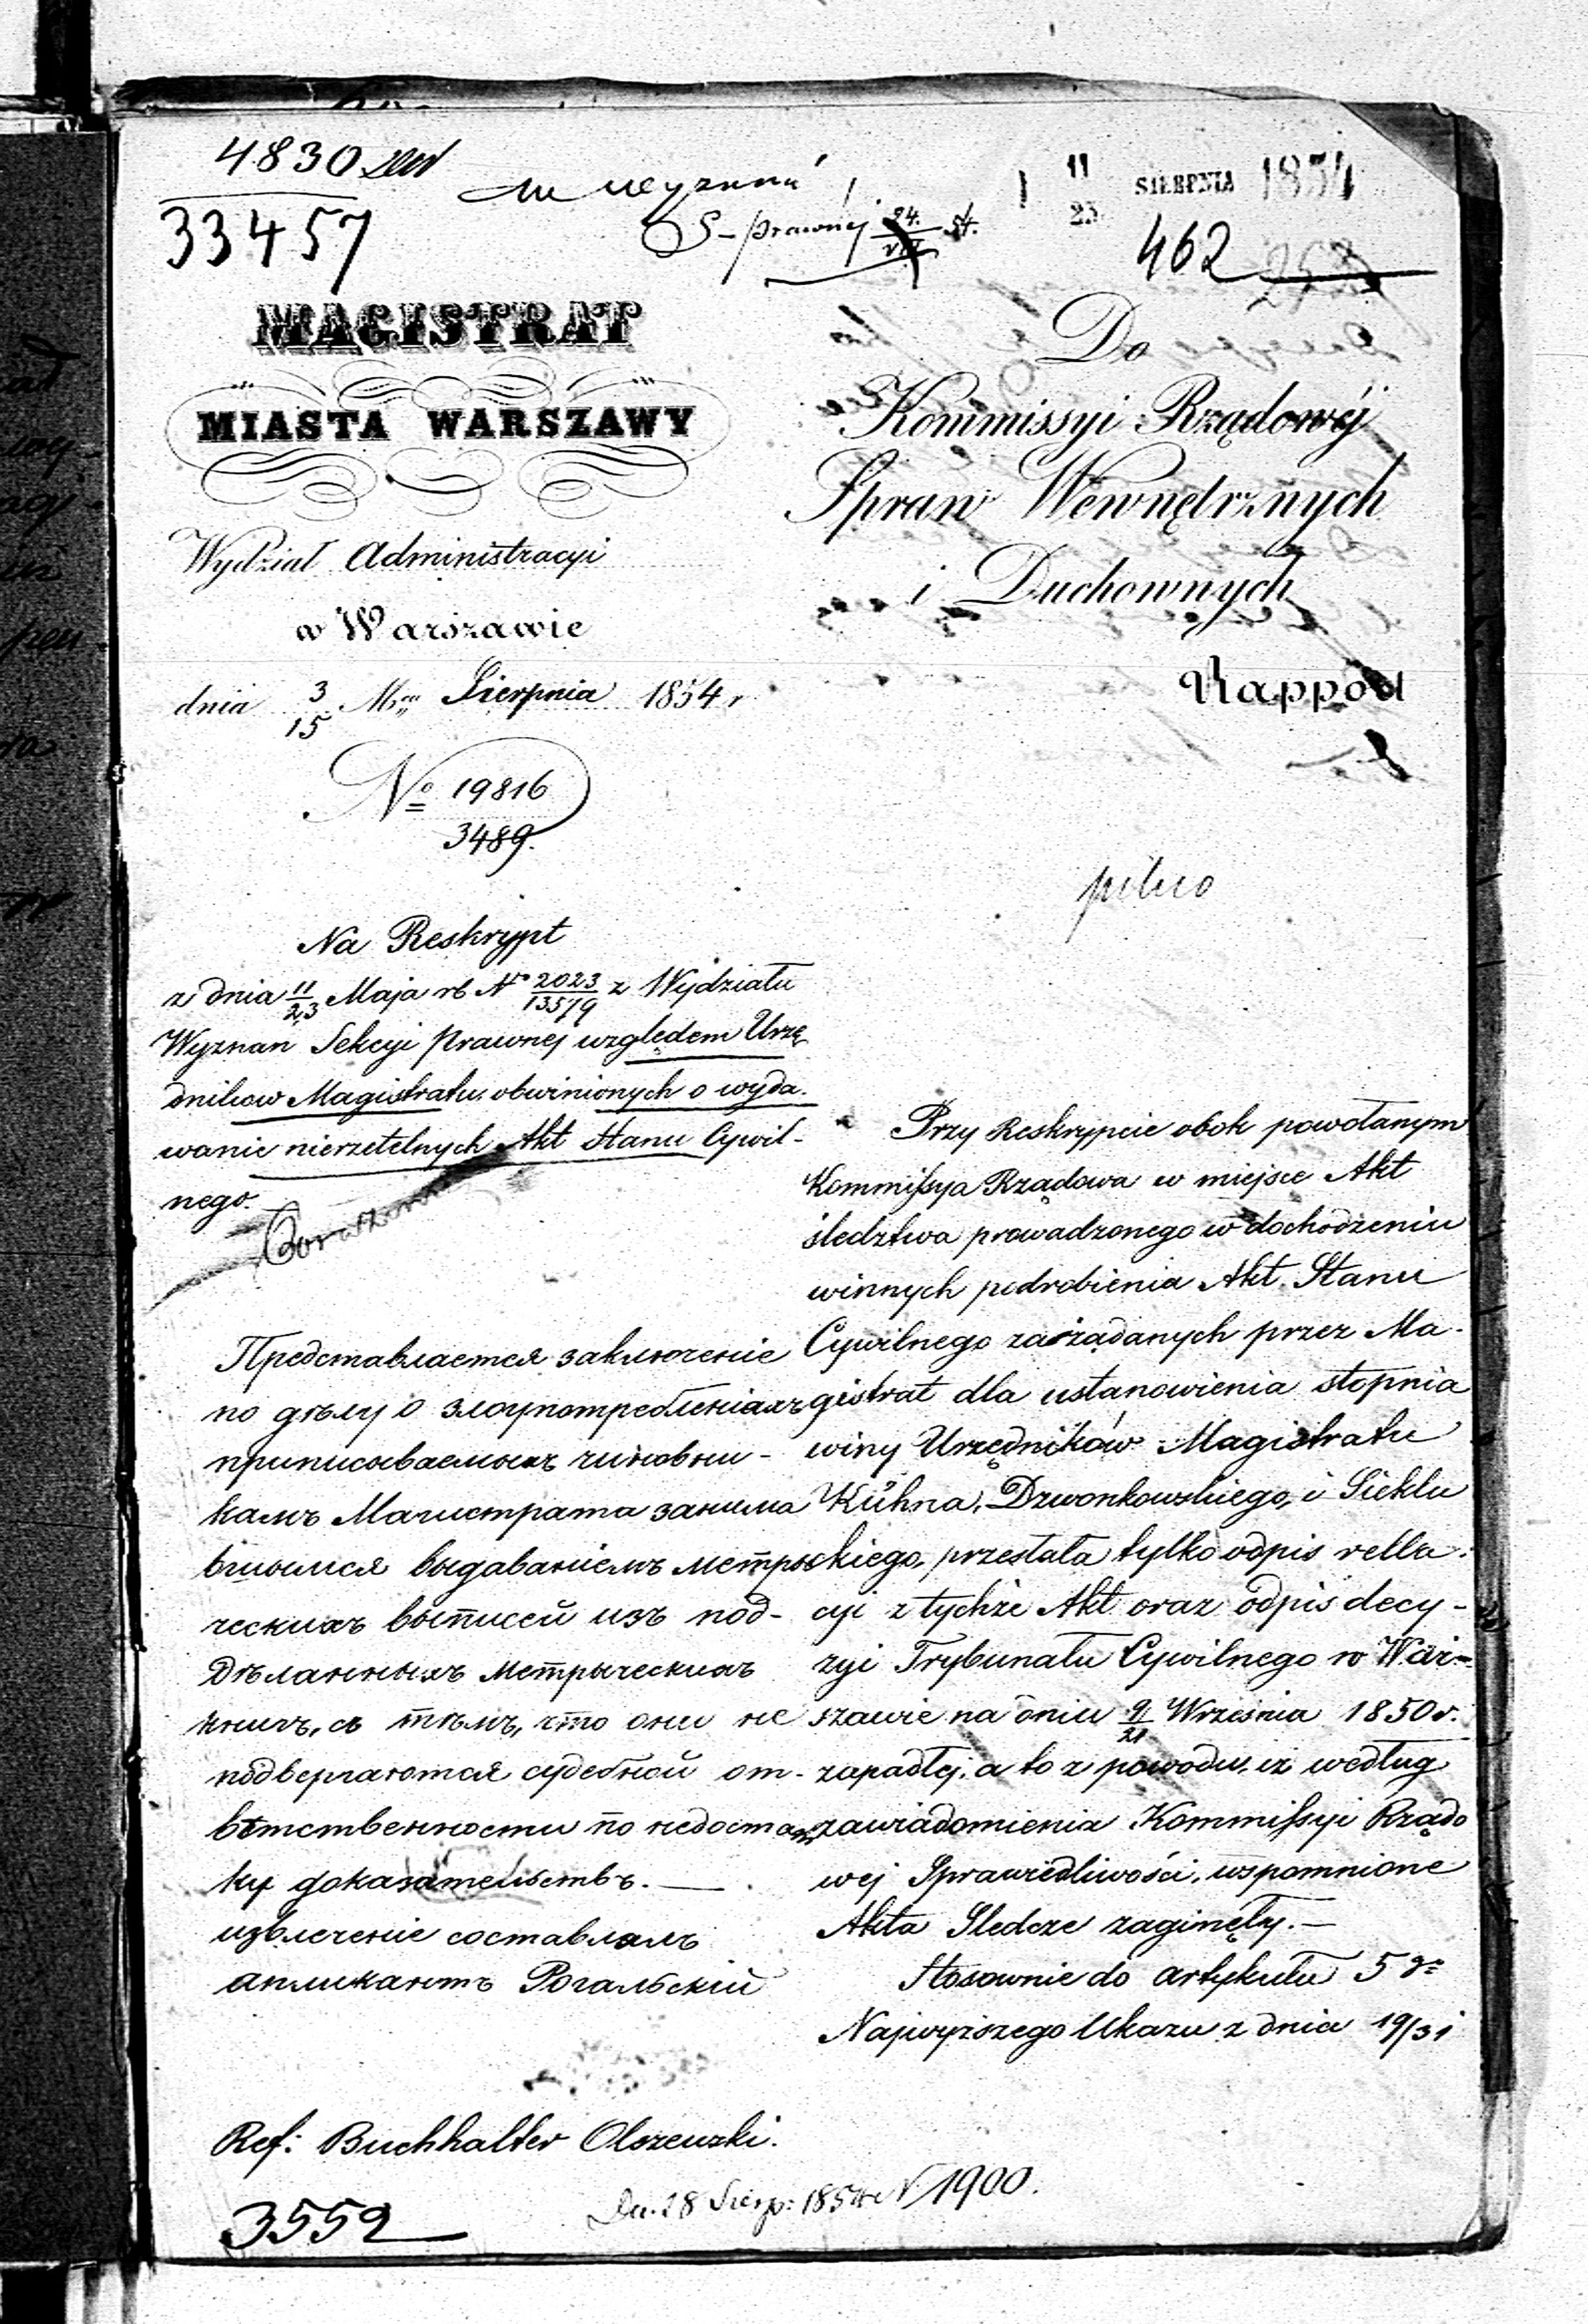 4830
33457
S-prawnej 24. VIII
11
23 SIERPNIA 1854
462
MAGISTRAT
MIASTA WARSZAWY
Wydział Administracyi
w Warszawie
dnia 3/15 Mca Sierpnia 1854 r
No 19816
3489.
Do
Kommissyi Rządowéj
Spraw Wewnętrznych
i Duchownych
Rapport
pilno
Na Reskrypt
z dnia 11/23 Maja rb No 2023/13579 z Wydziału
Wyznan Sekcyi Prawnej względem Urzę
dnikow Magistratu obwinionych o wyda-
wanie nierzetelnych Akt Stanu Cywil-
nego.
Представляется заключеніе
по дѣлу о злоупотребленіяхъ
приписываемыхъ чиновни-
камъ Магистрата занима
вшимся выдаваніемъ метры
ческихъ выписей изъ под-
дѣланныхъ метрыческихъ
книгъ, съ тѣмъ, что они не
подвергаются судебной от-
вѣтственности по недостат
ку доказательствъ.
извлеченіе составлялъ
апликантъ Рогальскій
Przy Reskrypcie obok powołanym
Kommissya Rządowa w miejsce Akt
śledztwa prowadzonego w dochodzeniu
winnych podrobienia Akt Stanu
Cywilnego zażądanych przez Ma-
gistrat dla ustanowienia stopnia
winy Urzędników Magistratu
Kühna, Dzwonkowskiego, i Sieklu
ckiego, przesłała tylko odpis rella-
cyi z tychże Akt oraz odpis decy-
zyi Trybunału Cywilnego w War-
szawie na dniu 9/21 Września 1850 r.
zapadłej, a to z powodu, iż według
zawiadomienia Kommissyi Rządo
wej Sprawiedliwości, wspomnione
Akta Śledcze zaginęły.—
Stosownie do artykułu 5go
Najwyższego Ukazu z dnia 19/31
Ref: Buchhalter Olszewski.
Dn. 28 Sierp: 1854 N 1900.
3552